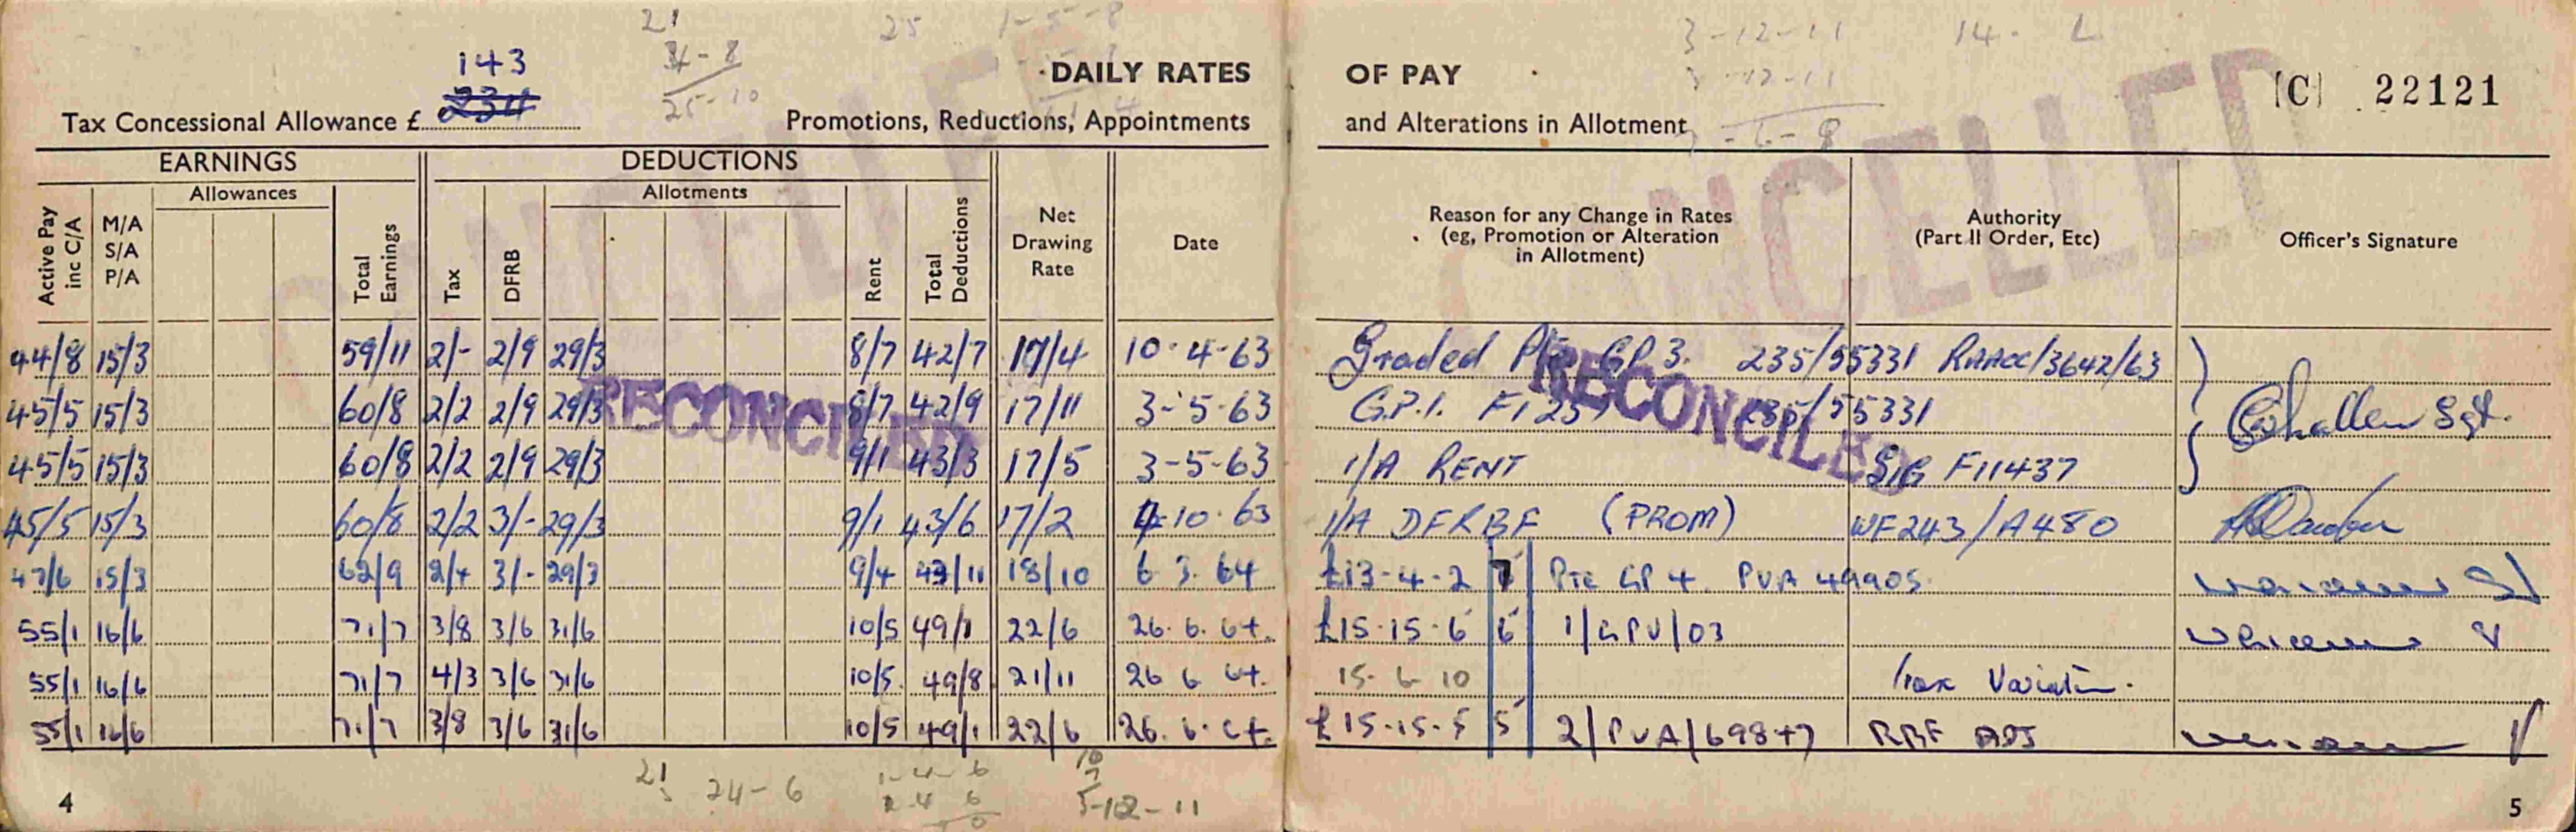 21 25 1-5-8
143 31-8 3-12-11 14.
DAILY RATES OF POAY
234 25-10 12-11 (C) 22121
Tax Concessional Allowance £ Promotions, Reductions, Appointments and Alterations in Allotment
-6-8
EARNINGS DEDUCTIONS
Allowances Allotments
Active Pay inc C/A M/A S/A P/A Total Earnings Tax DFRB Rent Total Deductions Net Drawing Rate Date Reason for any Change in Rates (eg, Promotion or Alteration in Allotment) Authority (Part II Order, Etc) Officer's Signature
CANCELLED
44/8 15/3 59/11 2/- 2/9 29/3 8/7 42/7 17/4 10-4-63 Graded Pte GP 3. 235/55331 RAACC/3642/63
RECONCILED RECONCILED
45/5 15/3 60/8 2/2 2/9 29/3 8/7 42/9 17/11 3-5-63 G.P.1. F1 235/55331 Sgt.
45/5 15/3 60/8 2/2 2/9 29/3 9/1 43/3 17/5 3-5-63 1/A RENT SIG F11437
45/5 15/3 60/8 2/2 3/- 29/3 9/1 43/6 17/2 4-10-63 1/A DFRBF (PROM) WF243/A480
47/6 15/3 62/9 2/4 3/- 29/3 9/4 43/11 18/10 6.3.64 £13-4-2 7 Pte GP 4. PVA 49905
55/1 16/6 71/7 3/8 3/6 31/6 10/5 49/1 22/6 26.6.64. £15-15-6 6 1/GPV/03
55/1 16/6 71/7 4/3 3/6 31/6 10/5. 49/8 21/11 26 6 64. 15-6-10 Tax Variatn.
55/1 16/6 71/7 3/8 3/6 31/6 10/5 49/1 22/6 26.6.64. £15-15-5 5 2/PVA/69847 RBF ADJ
21 24-6 1-4-6 10
4 6 7
5-12-11
4 5